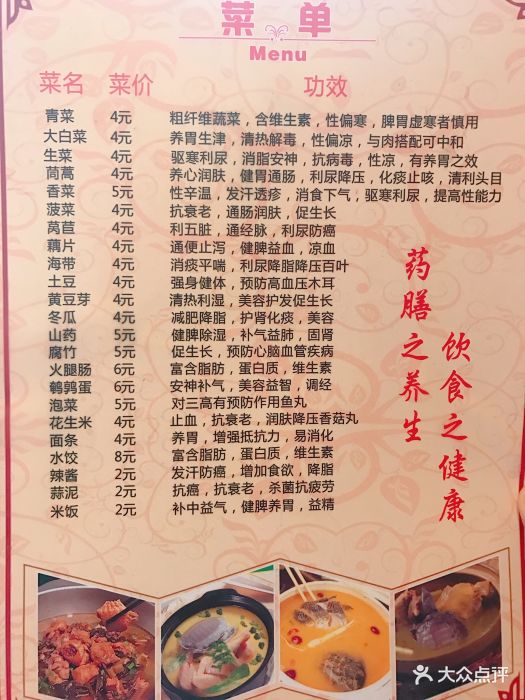 菜单
Menu
菜名 菜价 功效
青菜 4元 粗纤维蔬菜，含维生素，性偏寒，脾胃虚寒者慎用
大白菜 4元 养胃生津，清热解毒，性偏凉，与肉搭配可中和
生菜 4元 驱寒利尿，消脂安神，抗病毒，性凉，有养胃之效
茼蒿 4元 养心润肤，健胃通肠，利尿降压，化痰止咳，清利头目
香菜 5元 性辛温，发汗透疹，消食下气，驱寒利尿，提高性能力
菠菜 4元 抗衰老，通肠润肤，促生长
莴苣 4元 利五脏，通经脉，利尿防癌
藕片 4元 通便止泻，健脾益血，凉血
海带 4元 消痰平喘，利尿降脂降压百叶
土豆 4元 强身健体，预防高血压木耳
黄豆芽 4元 清热利湿，美容护发促生长
冬瓜 4元 减肥降脂，护肾化痰，美容
山药 5元 健脾除湿，补气益肺，固肾
腐竹 5元 促生长，预防心脑血管疾病
火腿肠 6元 富含脂肪，蛋白质，维生素
鹌鹑蛋 6元 安神补气，美容益智，调经
泡菜 5元 对三高有预防作用鱼丸
花生米 4元 止血，抗衰老，润肤降压香菇丸
面条 4元 养胃，增强抵抗力，易消化
水饺 8元 富含脂肪，蛋白质，维生素
辣酱 2元 发汗防癌，增加食欲，降脂
蒜泥 2元 抗癌，抗衰老，杀菌抗疲劳
米饭 2元 补中益气，健脾养胃，益精
药膳之养生
饮食之健康
大众点评